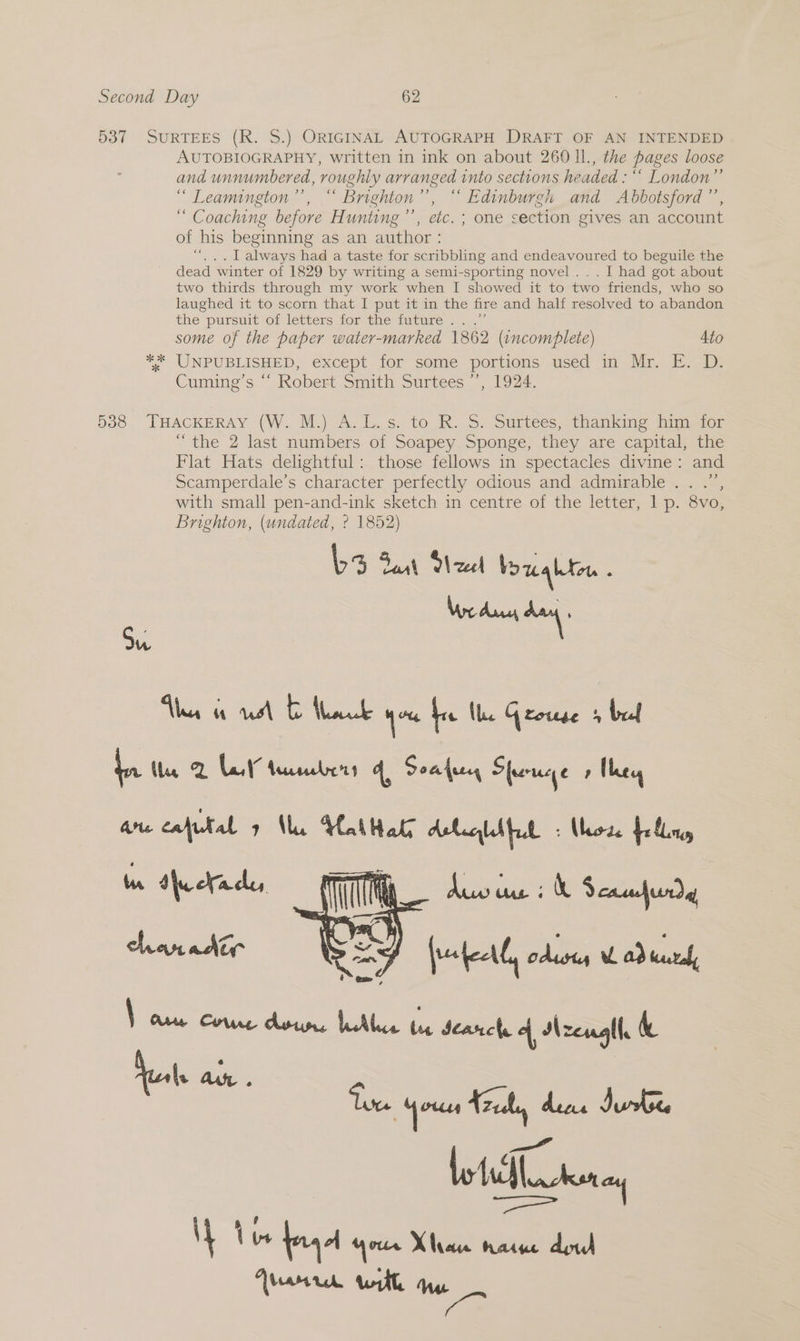 Second Day 62
537 SURTEES (R. S.) ORIGINAL AUTOGRAPH DRAFT OF AN INTENDED
AUTOBIOGRAPHY, written in ink on about 260 ll., the pages loose
and unnumbered, roughly arranged into sections headed : “ London”
“ Leamington ”, “ Brighton ”, “ Edinburgh and Abbotsford ”,
“ Coaching before Hunting ”, etc. ; one section gives an account
of his beginning as an author :
“. . . I always had a taste for scribbling and endeavoured to beguile the
dead winter of 1829 by writing a semi-sporting novel . . . I had got about
two thirds through my work when I showed it to two friends, who so
laughed it to scorn that I put it in the fire and half resolved to abandon
the pursuit of letters for the future . . .”
some of the paper water-marked 1862 (incomplete) 4to
*** UNPUBLISHED, except for some portions used in Mr. E. D.
Cuming’s “ Robert Smith Surtees ”, 1924.
538 THACKERAY (W. M.) A. L. s. to R. S. Surtees, thanking him for
“ the 2 last numbers of Soapey Sponge, they are capital, the
Flat Hats delightful : those fellows in spectacles divine : and
Scamperdale’s character perfectly odious and admirable . . .”,
with small pen-and-ink sketch in centre of the letter, 1 p. 8vo,
Brighton, (undated, ? 1852)
63 East Street Brighton .
Wednesday .
Sir
This is not to thank you for the Grouse ; but
for the 2 last numbers of Soapey Sponge , they
are capital , the Flat Hats delightful : those fellows
in spectacles divine : & Scamperdale
character perfectly odious & admirable
I am come down hither in search of strength &
fresh air .
yours truly dear
W M Thackeray
If I forget your name dont
quarrel with me